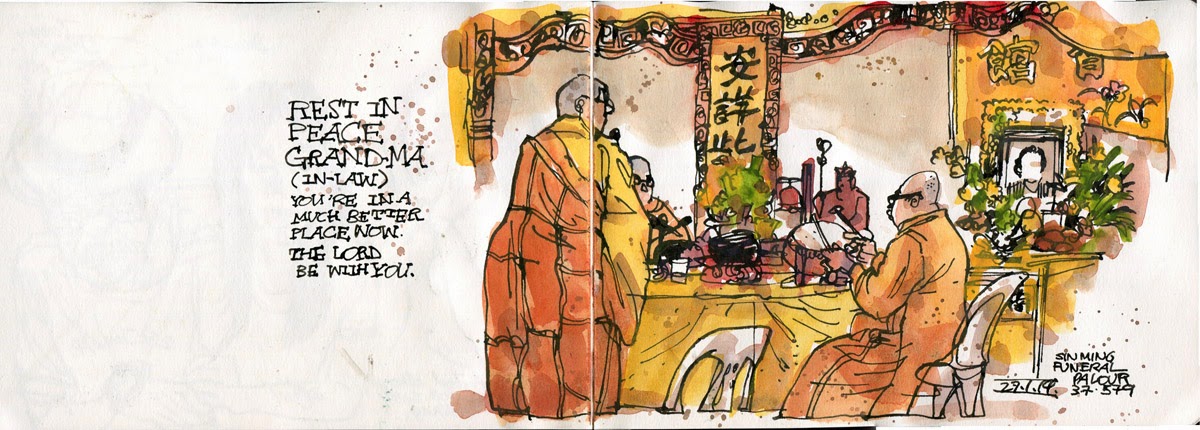 REST IN
PEACE
GRAND-MA
(IN-LAW)
YOU'RE IN A
MUCH BETTER
PLACE NOW.
THE LORD
BE WITH YOU.
安詳
館
SIN MING
FUNERAL
PALOUR
37·579